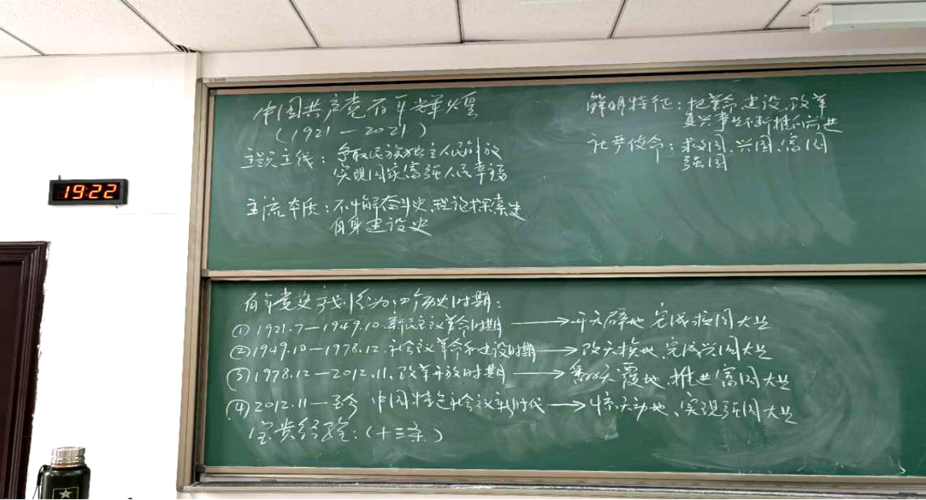 中国共产党百年辉煌
(1921—2021)
主题主线：争取民族独立人民解放
实现国家富强人民幸福
主流本质：不懈奋斗史,理论探索史
自身建设史
鲜明特征：把革命,建设,改革
复兴事业不断推向前进
社严使命：救国,兴国,富国
强国
19:22
百年党史可划分为四个历史时期：
①1921.7—1949.10.新民主义革命时期→开天辟地,完成救国大业
②1949.10—1978.12.社会主义革命和建设时期→改天换地,完成兴国大业
③1978.12—2012.11.改革开放时期→翻天覆地,推进富国大业
④2012.11—至今 中国特色社会主义新时代→惊天动地,实现强国大业
宝贵经验:(十三条)